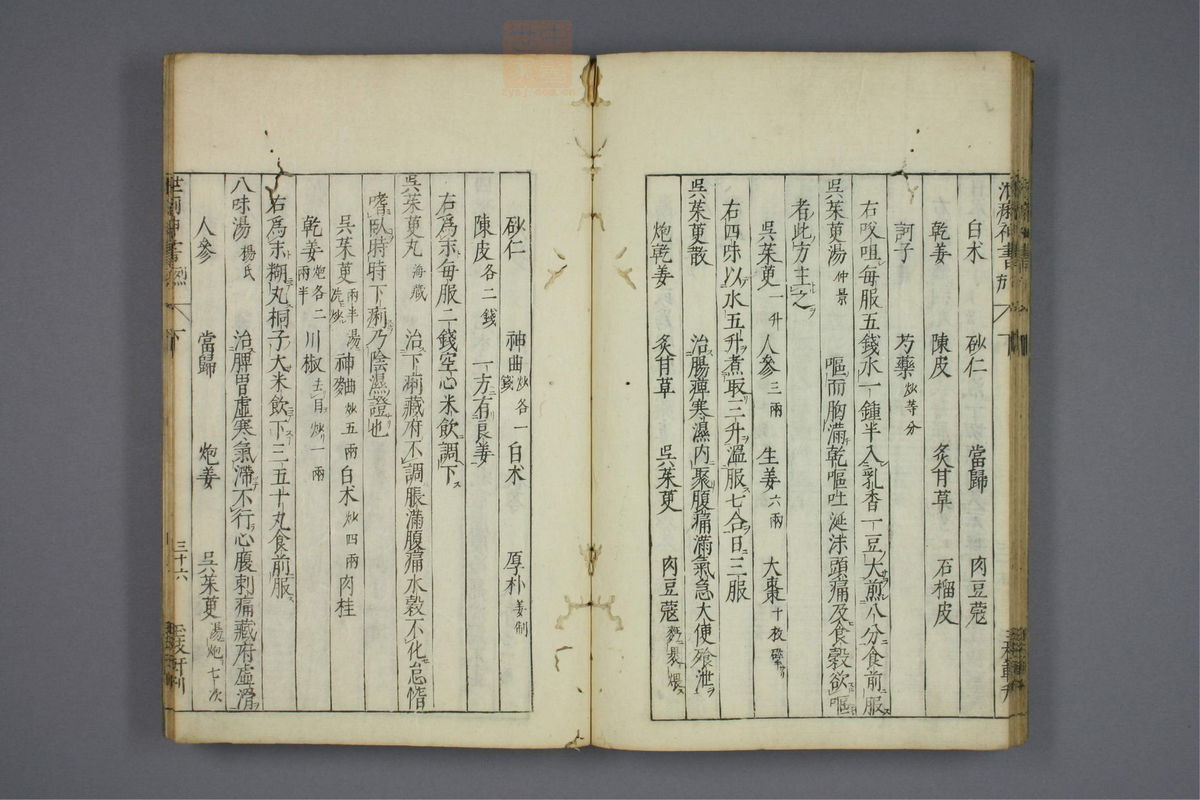 白术　砂仁　當歸　肉豆蔻
乾姜　陳皮　炙甘草　石榴皮
訶子　芍藥炒等分
右㕮咀每服五錢水一鍾半入乳香一豆大煎八分食前服
呉茱萸湯仲景　嘔而胸滿乾嘔吐涎沫頭痛及食穀欲嘔
者此方主之
呉茱萸一升　人參三兩　生姜六兩　大棗十枚擘
右四味以水五升煮取三升溫服七合日三服
呉茱萸散　治腸痺寒濕内聚腹痛滿氣急大便飱泄
炮乾姜　炙甘草　呉茱萸　肉豆蔻麪裹煨
砂仁　神曲炒各一錢　白术　厚朴姜制
陳皮各二錢　一方有良姜
右為末每服二錢空心米飲調下
呉茱萸丸海藏　治下痢藏府不調脹滿腹痛水穀不化怠惰
嗜臥時時下痢乃陰濕證也
呉茱萸兩半湯洗炒　神麴炒五兩　白术炒四兩　肉桂
乾姜炮各二兩半　川椒去目炒一兩
右為末糊丸桐子大米飲下三五十丸食前服
八味湯楊氏　治脾胃虛寒氣滯不行心腹刺痛藏府虛滑
人參　當歸　炮姜　呉茱萸湯炮七次
下　三十六